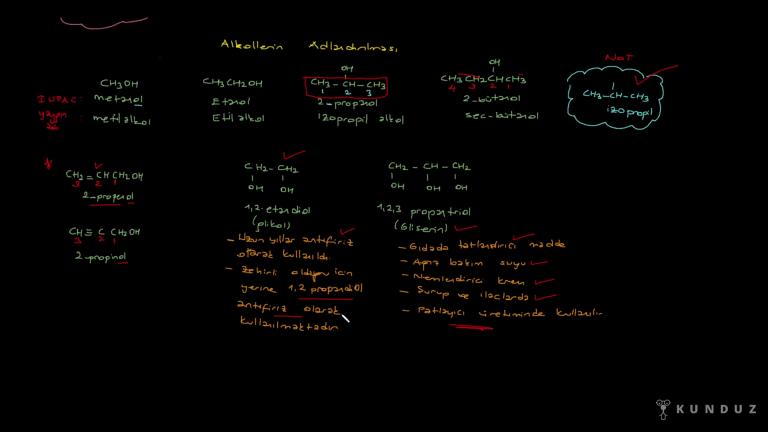 Alkollerin Adlandırılması
OH
OH
NOT
CH3OH CH3CH2OH CH3-CH-CH3 CH3CH2CHCH3
1 2 3 4 3 2 1
CH3-CH-CH3
izopropil
IUPAC: metanol Etanol 2-propanol 2-bütanol
yaygın metil alkol Etil alkol izopropil alkol sec-bütanol
CH2=CHCH2OH
3 2 1
2-propenol
CH≡CCH2OH
3 2 1
2-propinol
CH2-CH2
OH OH
1,2-etandiol
(glikol)
- Uzun yıllar antifiriz
olarak kullanıldı.
- Zehirli olduğu için
yerine 1,2 propandiol
antifiriz olarak
kullanılmaktadır
CH2-CH-CH2
OH OH OH
1,2,3 propantriol
(Gliserin)
- Gıdada tatlandırıcı madde
- Ağız bakım suyu
- Nemlendirici krem
- Şurup ve ilaçlarda
- Patlayıcı üretiminde kullanılır
KUNDUZ